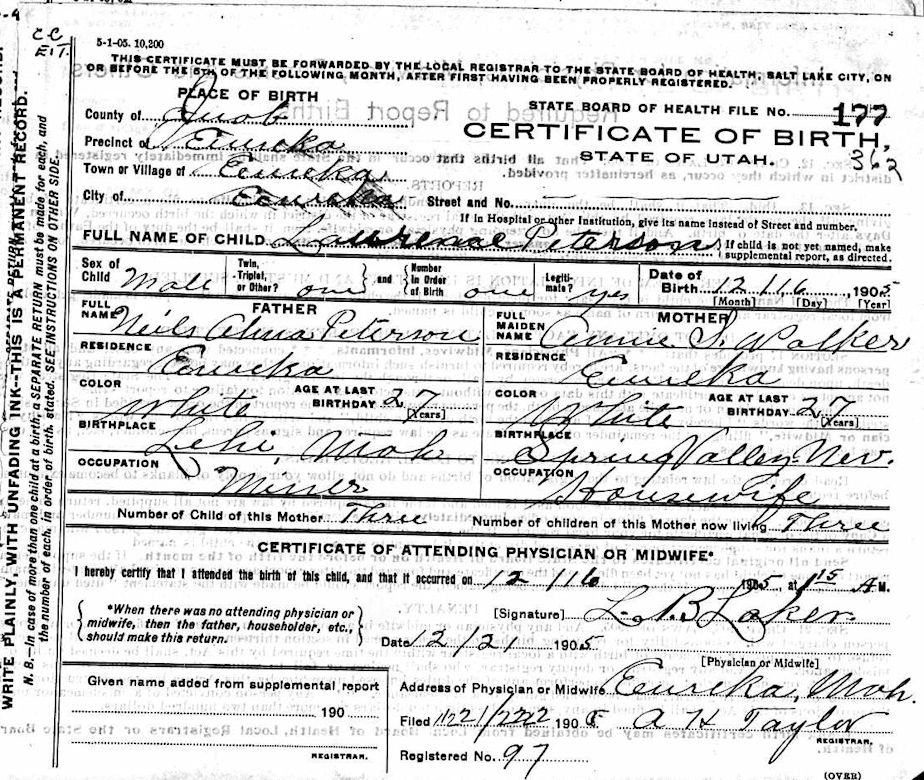 C C
E.I.T.
5-1-05. 10,200
THIS CERTIFICATE MUST BE FORWARDED BY THE LOCAL REGISTRAR TO THE STATE BOARD OF HEALTH, SALT LAKE CITY, ON
OR BEFORE THE 5TH OF THE FOLLOWING MONTH, AFTER FIRST HAVING BEEN PROPERLY REGISTERED.
PLACE OF BIRTH
County of Juab
Precinct of Eureka
Town or Village of Eureka
City of Eureka
STATE BOARD OF HEALTH FILE No. 177
CERTIFICATE OF BIRTH,
STATE OF UTAH. 362
Street and No.
If in Hospital or other Institution, give its name instead of Street and number.
FULL NAME OF CHILD Laurence Peterson { If child is not yet named, make
supplemental report, as directed.
Sex of Child Male Twin, Triplet, or Other? one and Number in Order of Birth one Legiti-mate? yes Date of Birth 12 / 16, 1905
[Month] [Day] [Year]
FATHER
FULL NAME Neils Alma Peterson
RESIDENCE
Eureka
COLOR White AGE AT LAST BIRTHDAY 27 [Years]
BIRTHPLACE Lehi, Utah
OCCUPATION Miner
MOTHER
FULL MAIDEN NAME Annie S. Walker
RESIDENCE
Eureka
COLOR White AGE AT LAST BIRTHDAY 27 [Years]
BIRTHPLACE Spring Valley Nev.
OCCUPATION Housewife
Number of Child of this Mother Three Number of children of this Mother now living Three
CERTIFICATE OF ATTENDING PHYSICIAN OR MIDWIFE*
I hereby certify that I attended the birth of this child, and that it occurred on 12 / 16 1905, at 1 15 A M.
*When there was no attending physician or
midwife, then the father, householder, etc.,
should make this return.
[Signature] L. B Laker.
Date 12/21 1905
[Physician or Midwife]
Given name added from supplemental report
190
REGISTRAR.
Address of Physician or Midwife Eureka, Utah.
Filed 190 A H Taylor
REGISTRAR.
Registered No. 97
(OVER)
WRITE PLAINLY, WITH UNFADING INK--THIS IS A PERMANENT RECORD.
N. B.--In case of more than one child at a birth, a SEPARATE RETURN must be made for each, and
the number of each, in order of birth, stated. SEE INSTRUCTIONS ON OTHER SIDE.